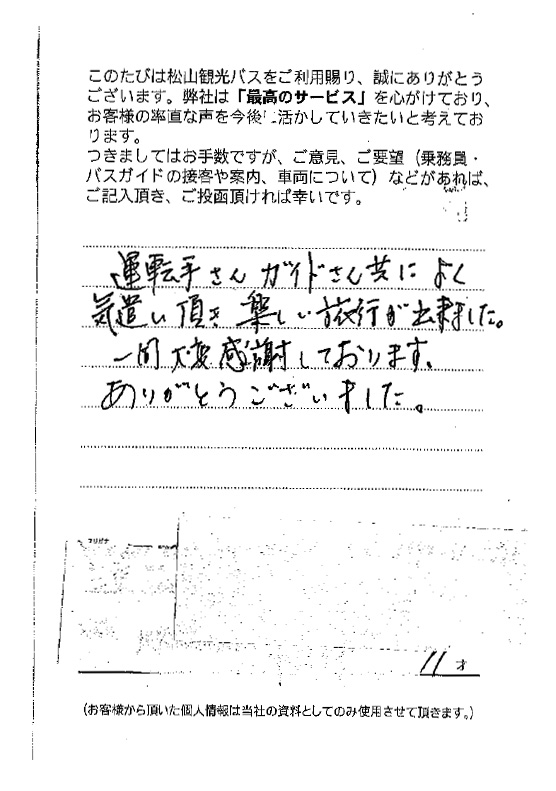 このたびは松山観光バスをご利用賜り、誠にありがとう
ございます。弊社は「最高のサービス」を心がけており、
お客様の率直な声を今後に活かしていきたいと考えてお
ります。
つきましてはお手数ですが、ご意見、ご要望（乗務員・
バスガイドの接客や案内、車両について）などがあれば、
ご記入頂き、ご投函頂ければ幸いです。
運転手さんガイドさん共によく
気遣い頂き楽しい旅行が出来ました。
一同大変感謝しております、
ありがとうございました。
フリガナ
11才
(お客様から頂いた個人情報は当社の資料としてのみ使用させて頂きます。)